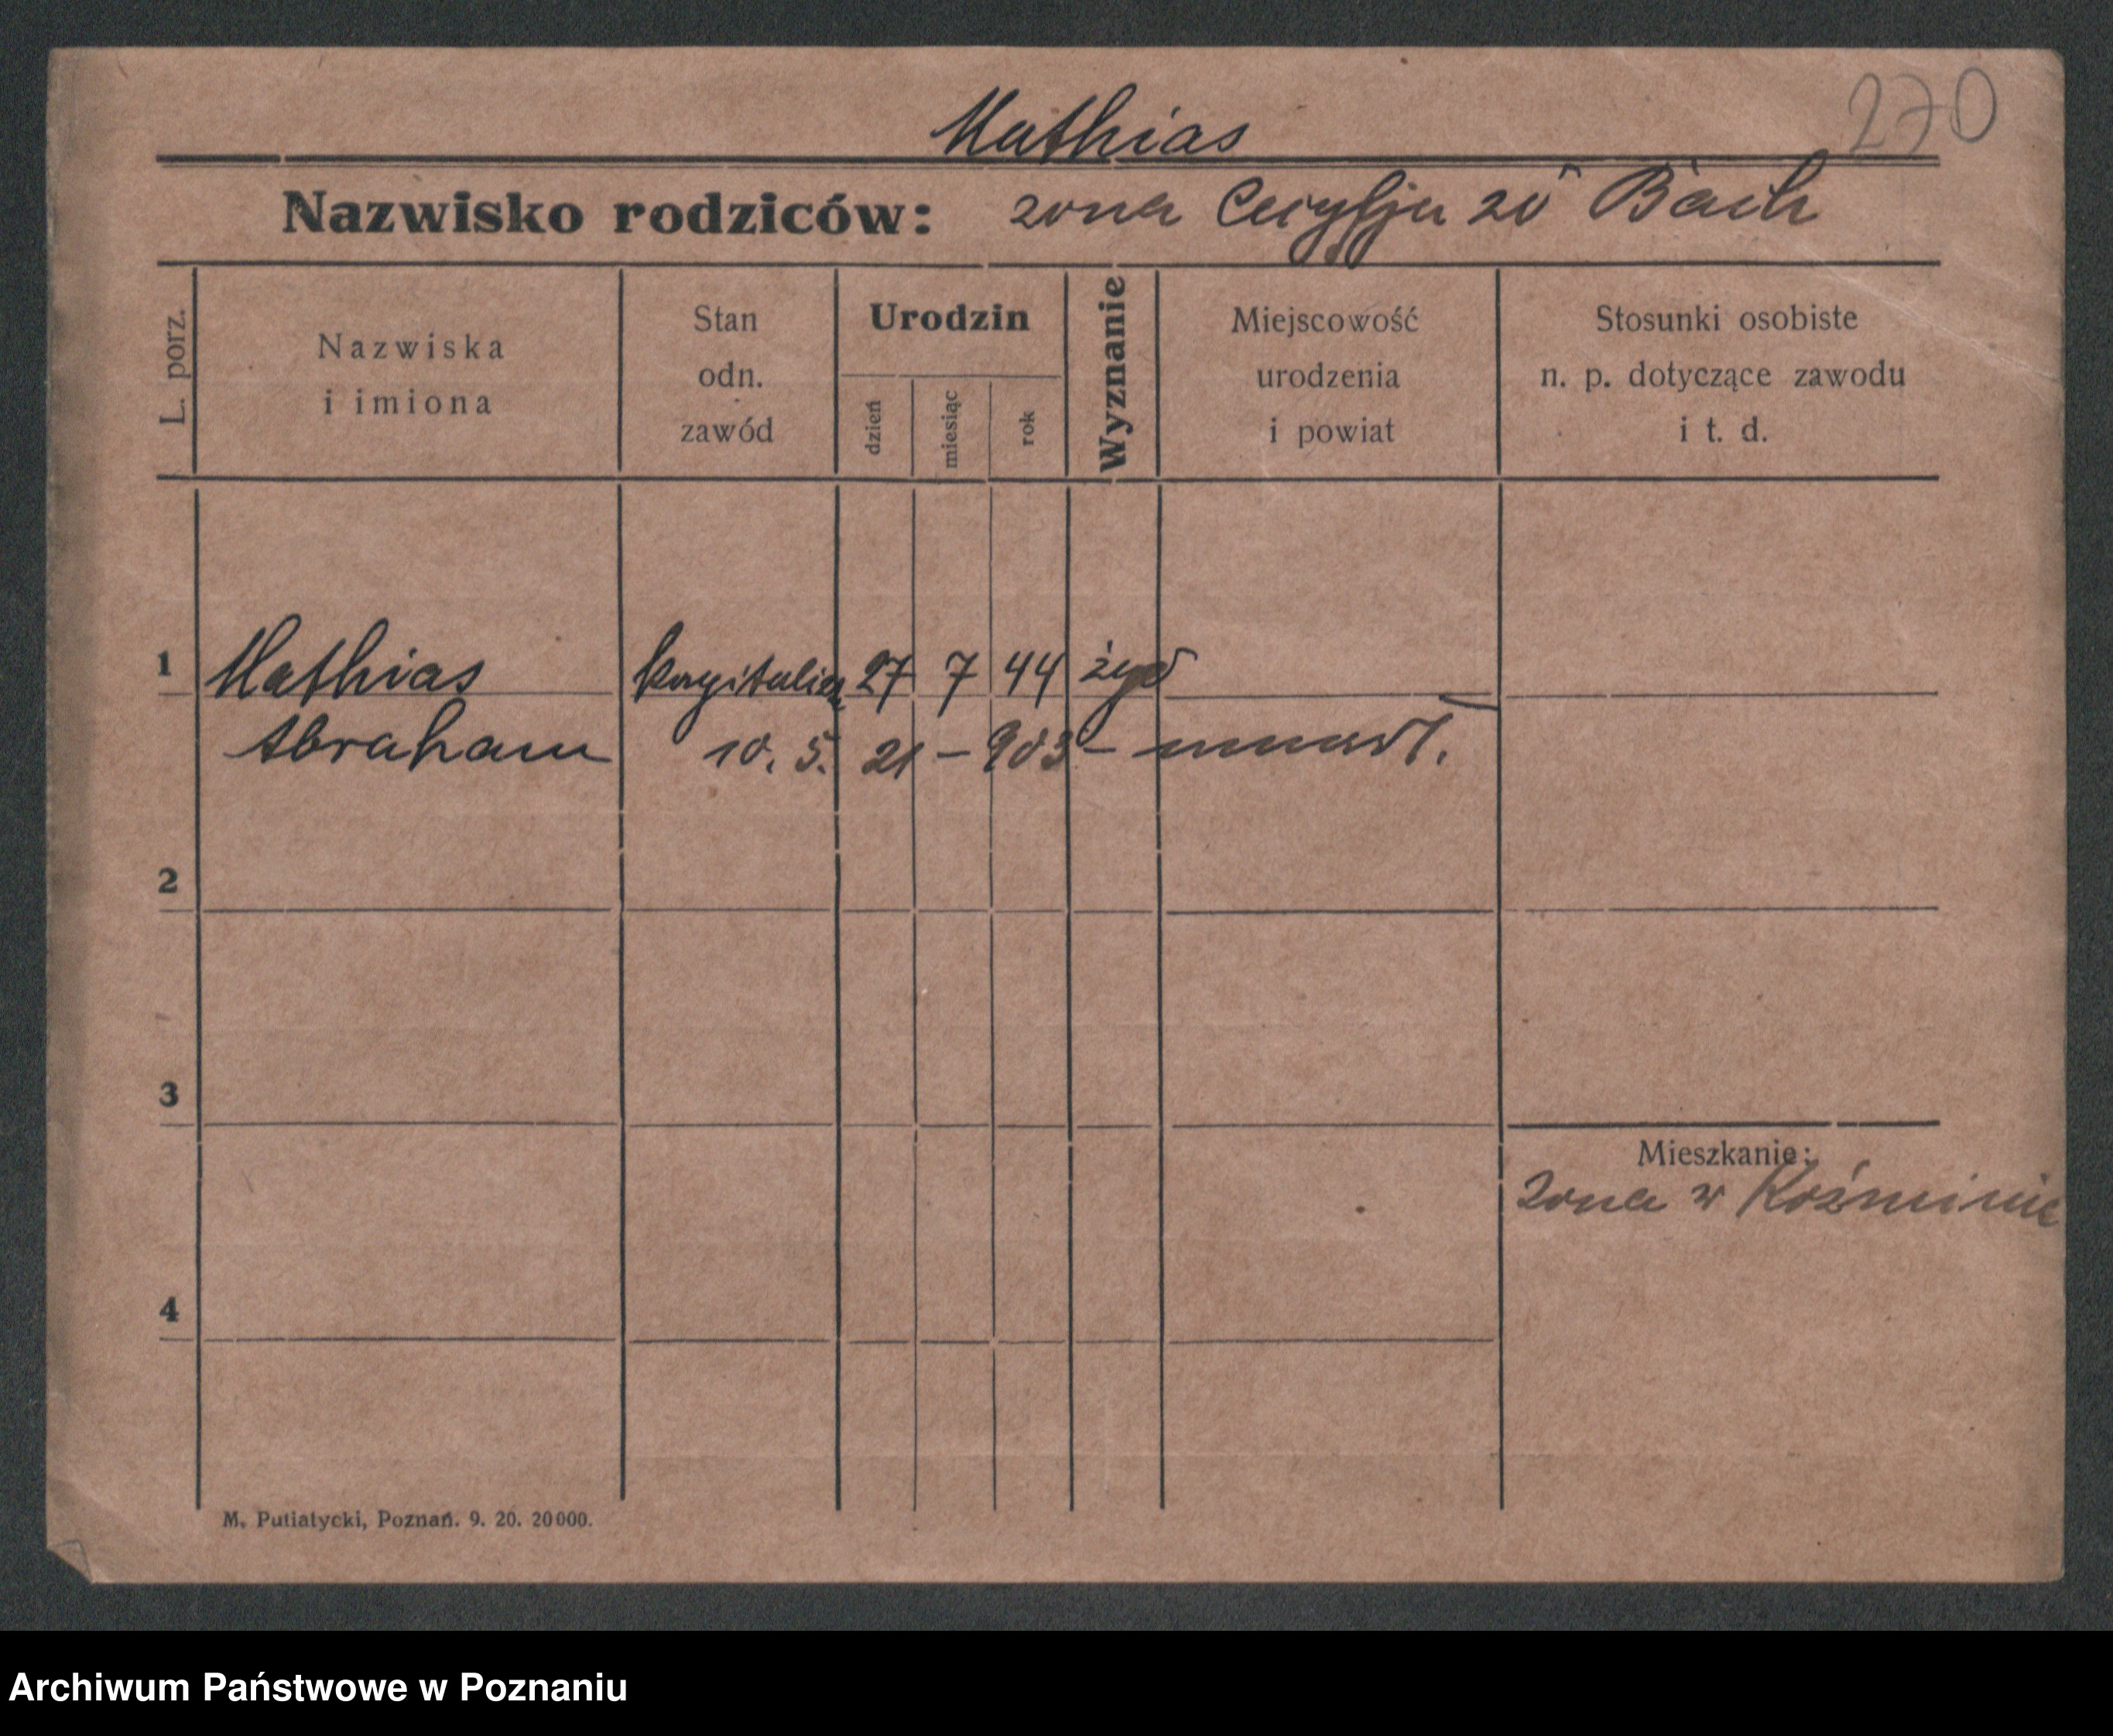 270
Mathias
Nazwisko rodziców: zona Cecylja zd Bach
L. porz.
Nazwiska
i imiona
Stan
odn.
zawód
Urodzin
dzień
miesiąc
rok
Wyznanie
Miejscowość
urodzenia
i powiat
Stosunki osobiste
n. p. dotyczące zawodu
i t. d.
1 Mathias 27 7 44 żyd
Abraham 10. 5. 21 – 903 – umarł.
2
3
Mieszkanie:
zona w Koźminie
4
M. Putiatycki, Poznań. 9. 20. 20000.
Archiwum Państwowe w Poznaniu